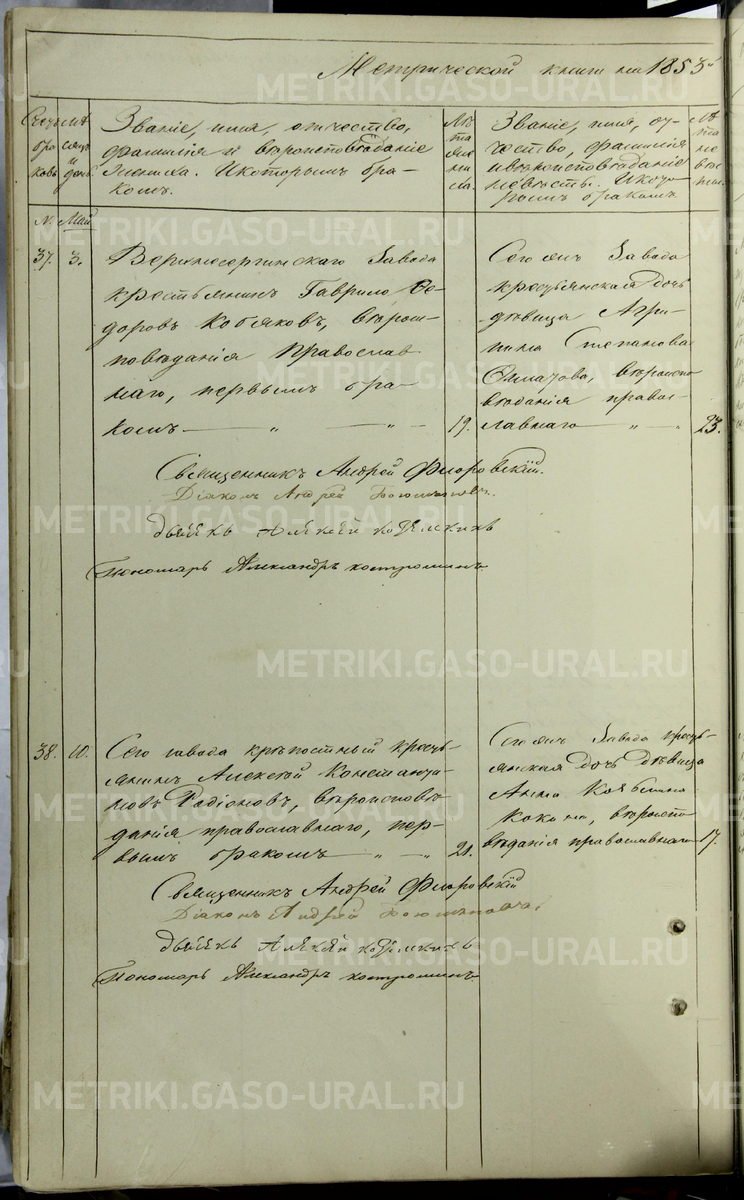 Метрической книги на 1853й
Счетъ бра ковъ
М-цъ и день.
Званіе, имя, отчество,
фамилія и вѣроисповѣданіе
жениха. И которымъ бра-
комъ.
Лѣ
та же
ни
ха.
Званіе, имя, от-
чество, фамилія
и вѣроисповѣданіе
невѣсты. И кото-
рымъ бракомъ
Лѣ
та
не
вѣс
ты.
№. Май
37. 3.
Верхнесергинскаго Завода
крестьянинъ Гаврило Ѳе-
доровъ Кобяковъ, вѣроис-
повѣданія православ
наго, первымъ бра-
комъ — „ — „ — 19.
Сего жъ Завода
крестьянская дочь
дѣвица Агри-
пина Степанова
вѣроиспо
вѣданія правос-
лавнаго — „ — 23.
Священникъ Андрей Флоровскій.
Діаконъ Андрей
дьячекъ Алѣксѣй
Пономарь Александръ костроминъ.
38. 10.
Сего завода крѣпостный кресть-
янинъ Алексѣй Константи-
новъ Радіоновъ, вѣроисповѣ
данія православнаго, пер-
вымъ бракомъ — „ — 21.
Сего жъ Завода кресть-
янская дочь дѣвица
Анна
вѣроиспо
вѣданія православнаго 17.
Священникъ Андрей Флоровскій
Діаконъ Андрей
дьячекъ Алѣксѣй
Пономарь Александръ костроминъ.
METRIKI.GASO-URAL.RU